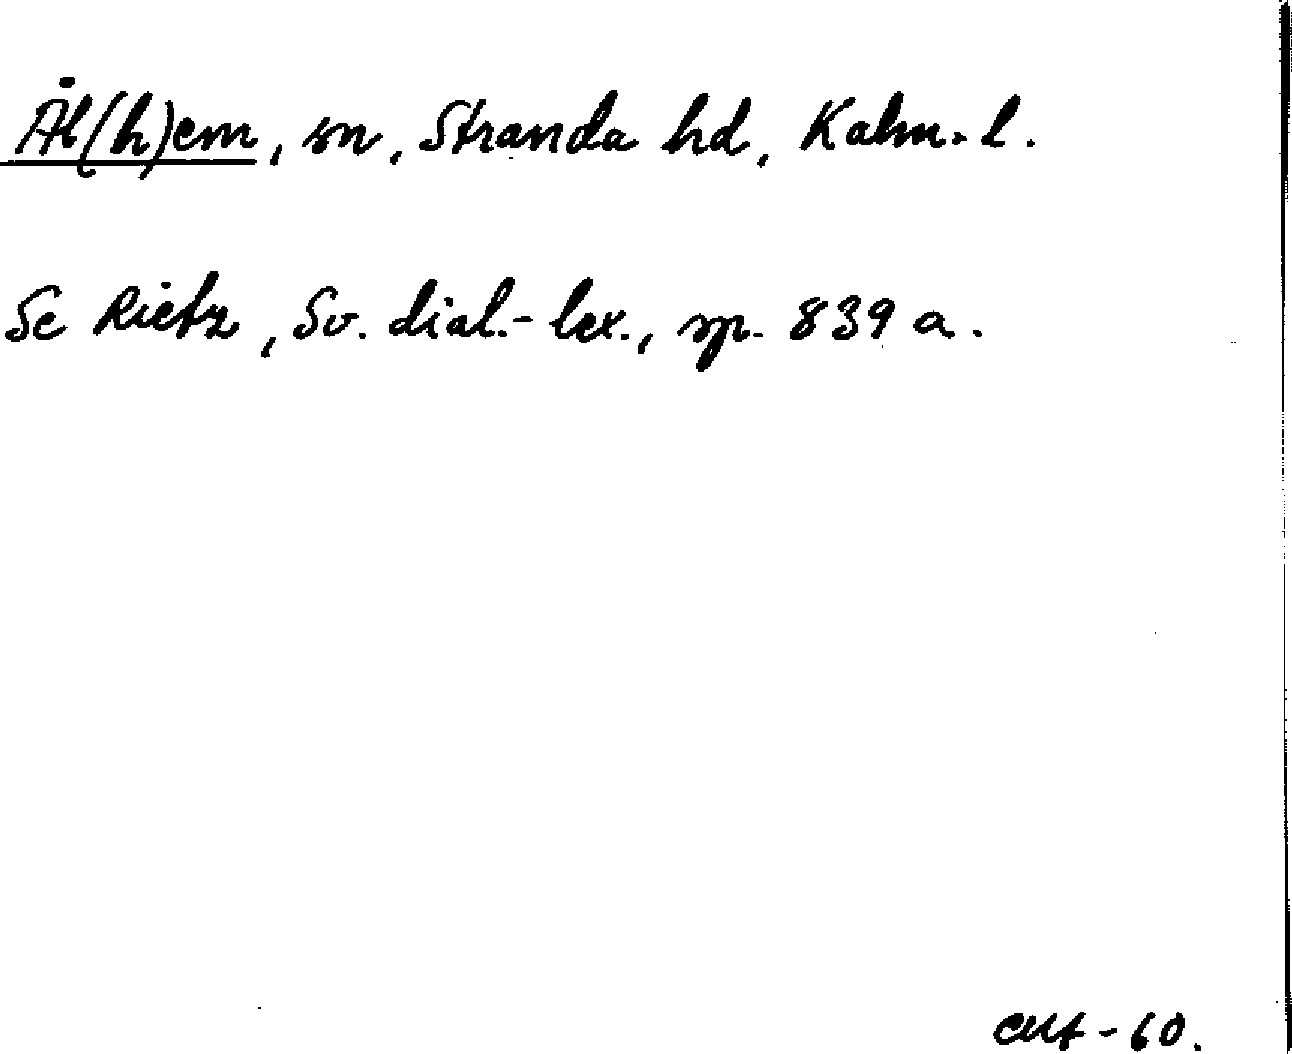 Ål(h)em, sn, Stranda hd, Kalm. l.
Se Rietz, Sv. dial.-lex., sp. 839 a.
-60.